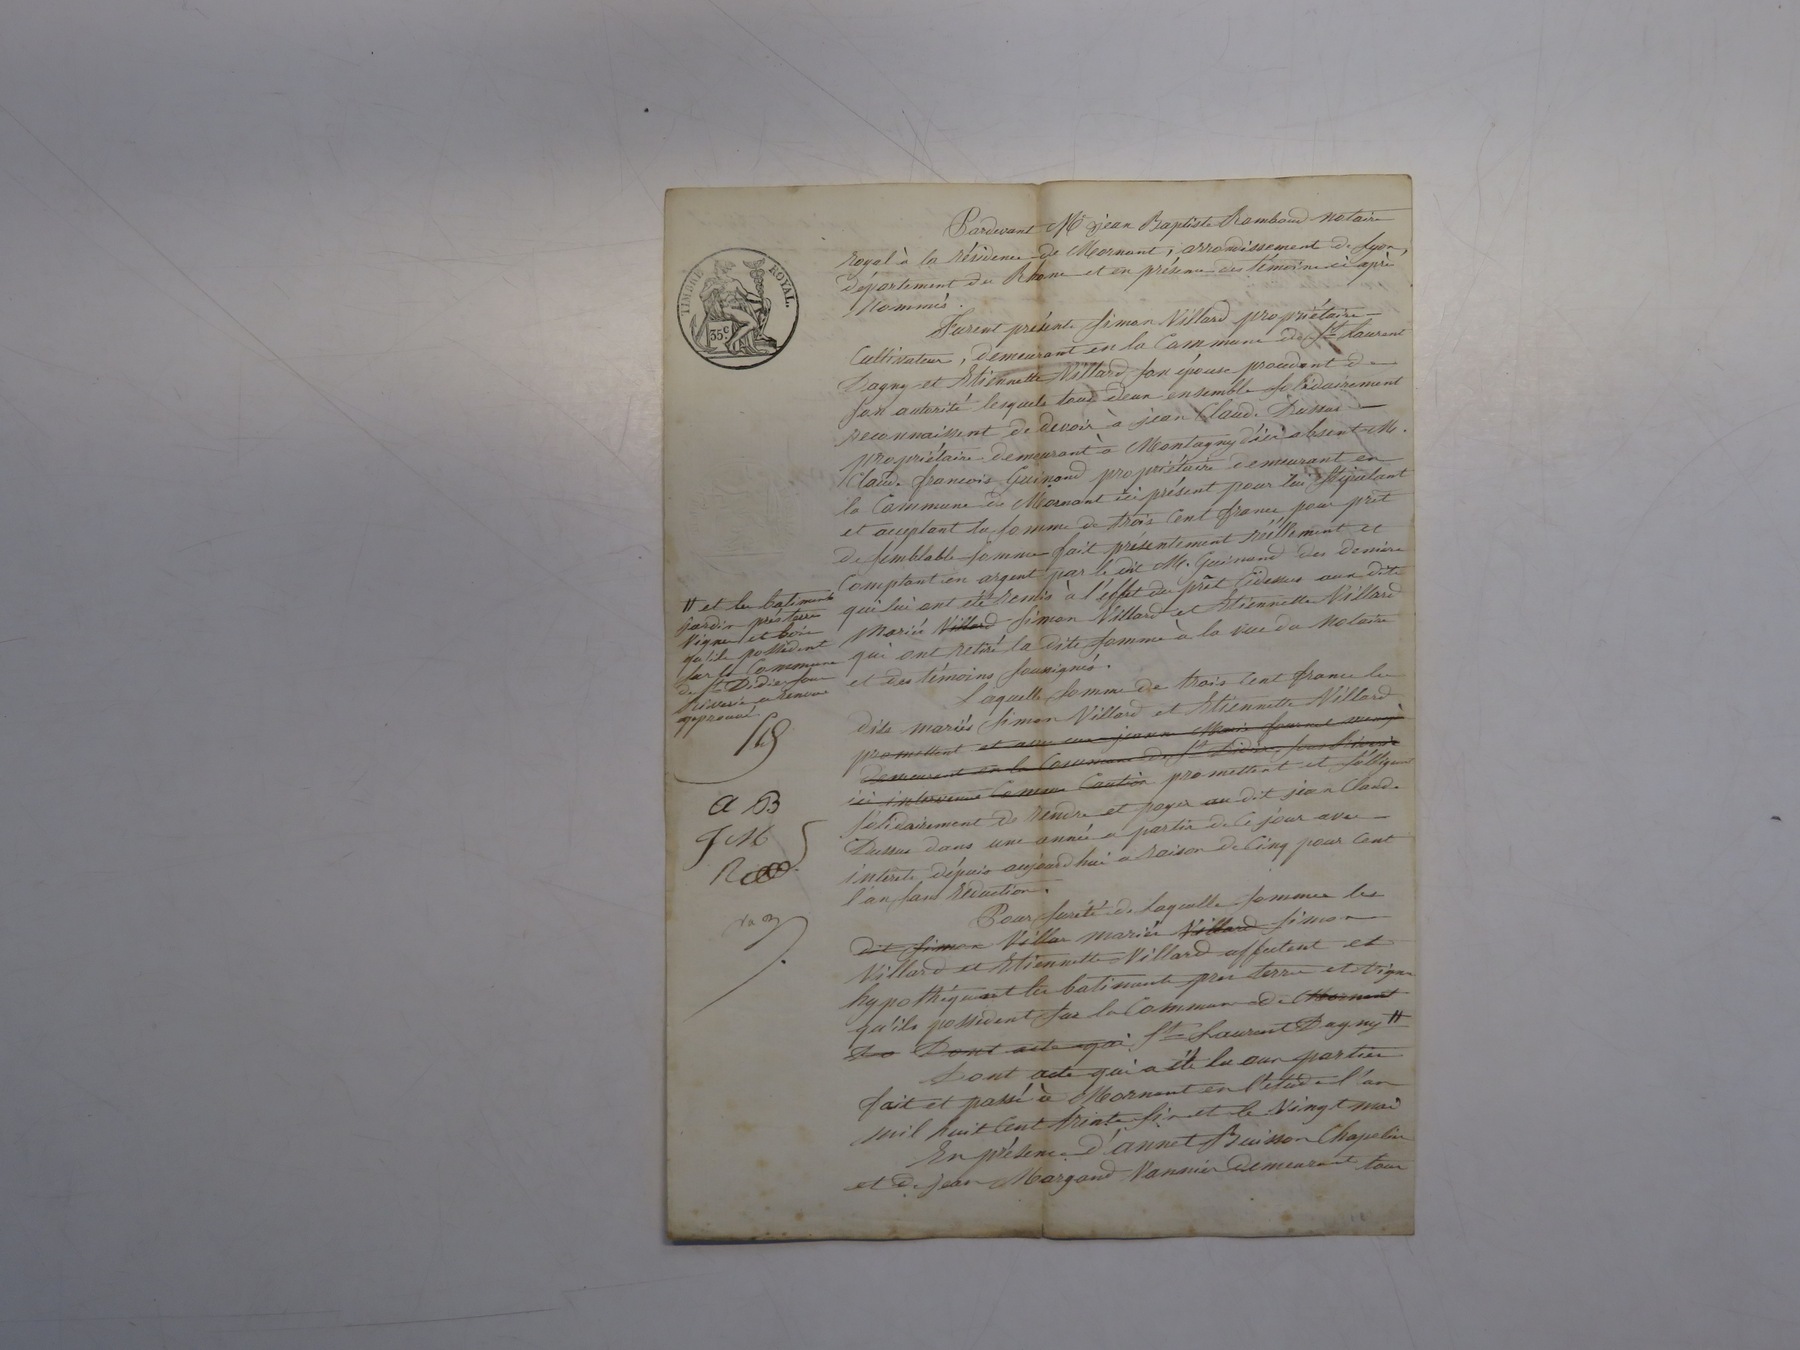 TIMBRE ROYAL.
35 c.
Pardevant Me jean Baptiste Rambaud notaire
royal à la résidence de Mornant, arrondissement de Lyon,
département du Rhone et en présence des témoins ci après
Nommés.
Furent présents Simon Villard propriétaire
Cultivateur, demeurant en la Commune de St Laurent
Dagny et Etiennette Villard son épouse procedant de
son autorité lesquels tous deux ensemble solidairement
reconnaissent de devoir à jean Claude Dussus
propriétaire demeurant à Montagny d'ici absent M.
Claude francois Guinand propriétaire demeurant en
la Commune de Mornant ici présent pour lui Stipulant
et acceptant la somme de trois Cent francs pour prêt
de semblable somme fait présentement réellement et
Comptant en argent par le dit M. Guinand des deniers
qui lui ont été remis à l'effet du prêt Cidessus aux dits
mariés Villard Simon Villard et Etiennette Villard
qui ont retiré la dite somme à la vue du Notaire
et des témoins soussignés.
Laquelle somme de trois Cent francs les
dits mariés Simon Villard et Etiennette Villard
promettent et avec eux jeanne Marie
demeurant en la Commune de St Didier sous Riverie
ici intervenue Comme Caution promettent et s'obligent
solidairement de rendre et payer au dit jean Claude
Dussus dans une année a partir de Ce jour avec
interets depuis aujourd'hui a raison de Cinq pour Cent
l'an sans réduction.
Pour sureté de laquelle somme les
dit Simon Villar mariés Villard Simon
Villard et Etiennette Villard affectent et
hypothéquent les batiments pres terres et Vigne
qu'ils possèdent sur la Commune de Mornant
Do Dont acte qui St Laurent Dagny #
Dont acte qui a été lu aux parties
fait et passé à Mornant en l'etude l'an
mil huit Cent trente six et le Vingt mai
En présence d'annet Buisson Chapelier
et de jean Margand Vannier demeurant tous
# et les batiments
jardin pres terre
Vigne et bois
qu'ils possèdent
sur la Commune
de St Didier sous
Riverie
approuvé
a B
J M